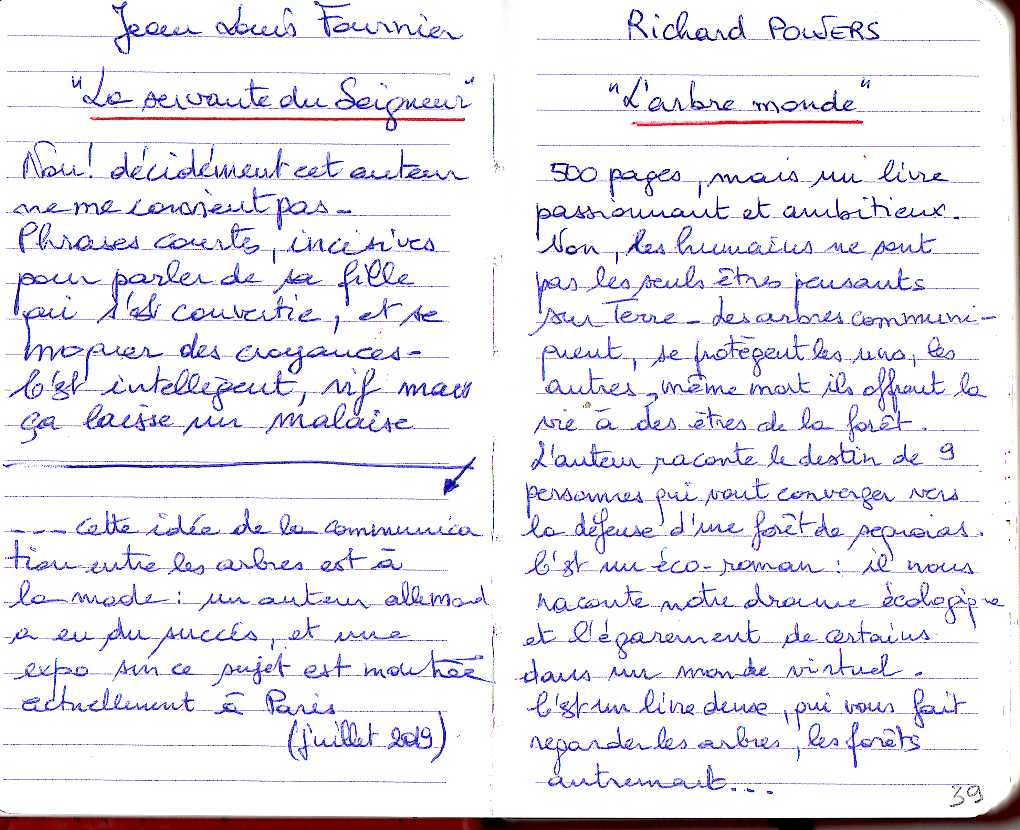 Jean Louis Fournier
"La servante du Seigneur"
Non! décidément cet auteur
ne me convient pas -
Phrases courtes, incisives
pour parler de sa fille
qui s'est convertie, et se
moquer des croyances -
C'est intelligent, vif mais
ça laisse un malaise
--- cette idée de la communica
tion entre les arbres est à
la mode : un auteur allemand
a eu du succès, et une
expo sur ce sujet est montrée
actuellement à Paris
(juillet 2019)
Richard POWERS
"L'arbre monde"
500 pages, mais un livre
passionnant et ambitieux.
Non, les humains ne sont
pas les seuls êtres pensants
sur Terre - des arbres communi-
quent, se protègent les uns, les
autres, même mort ils offrent la
vie à des êtres de la forêt.
L'auteur raconte le destin de 9
personnes qui vont converger vers
la défense d'une forêt de sequoias.
C'est un éco-roman : il nous
raconte notre drame écologique
et l'égarement de certains
dans un monde virtuel.
C'est un livre dense, qui vous fait
regarder les arbres, les forêts
autrement...
39